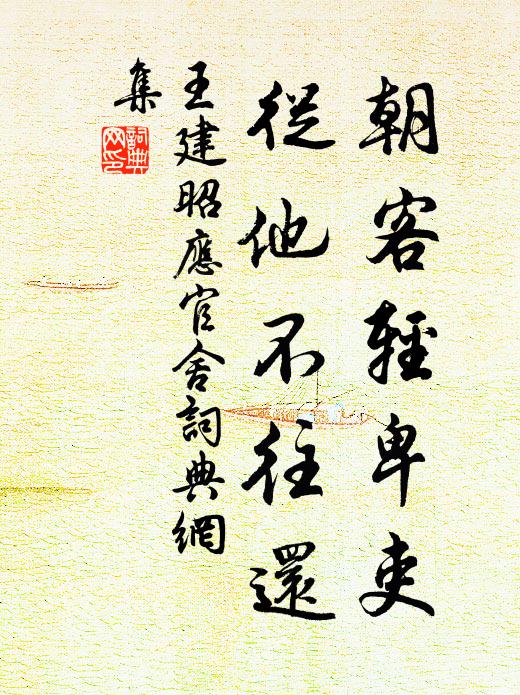 朝客輕卑吏
從他不往還
王建昭應官舍詞典網
集
詞典
网印